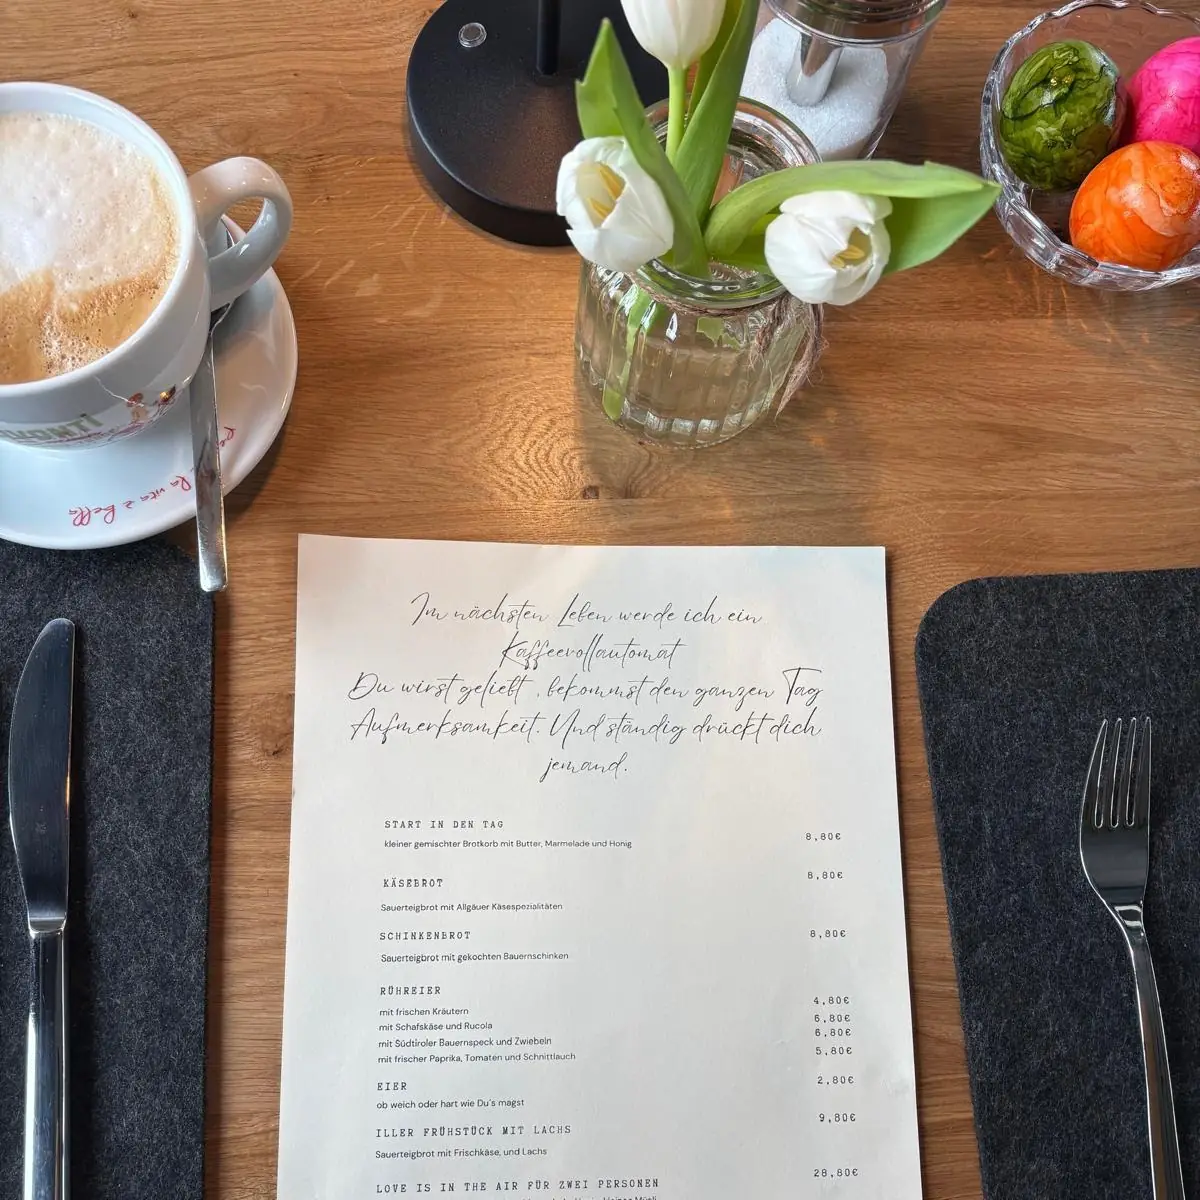 La vita è bella
Im nächsten Leben werde ich ein
Kaffeevollautomat
Du wirst geliebt , bekommst den ganzen Tag
Aufmerksamkeit. Und ständig drückt dich
jemand.
START IN DEN TAG
8,80€
kleiner gemischter Brotkorb mit Butter, Marmelade und Honig
8,80€
KÄSEBROT
Sauerteigbrot mit Allgäuer Käsespezialitäten
SCHINKENBROT
8,80€
Sauerteigbrot mit gekochten Bauernschinken
RÜHREIER
mit frischen Kräutern
4,80€
mit Schafskäse und Rucola
6,80€
mit Südtiroler Bauernspeck und Zwiebeln
6,80€
mit frischer Paprika, Tomaten und Schnittlauch
5,80€
EIER
2,80€
ob weich oder hart wie Du's magst
ILLER FRÜHSTÜCK MIT LACHS
9,80€
Sauerteigbrot mit Frischkäse, und Lachs
LOVE IS IN THE AIR FÜR ZWEI PERSONEN
28,80€